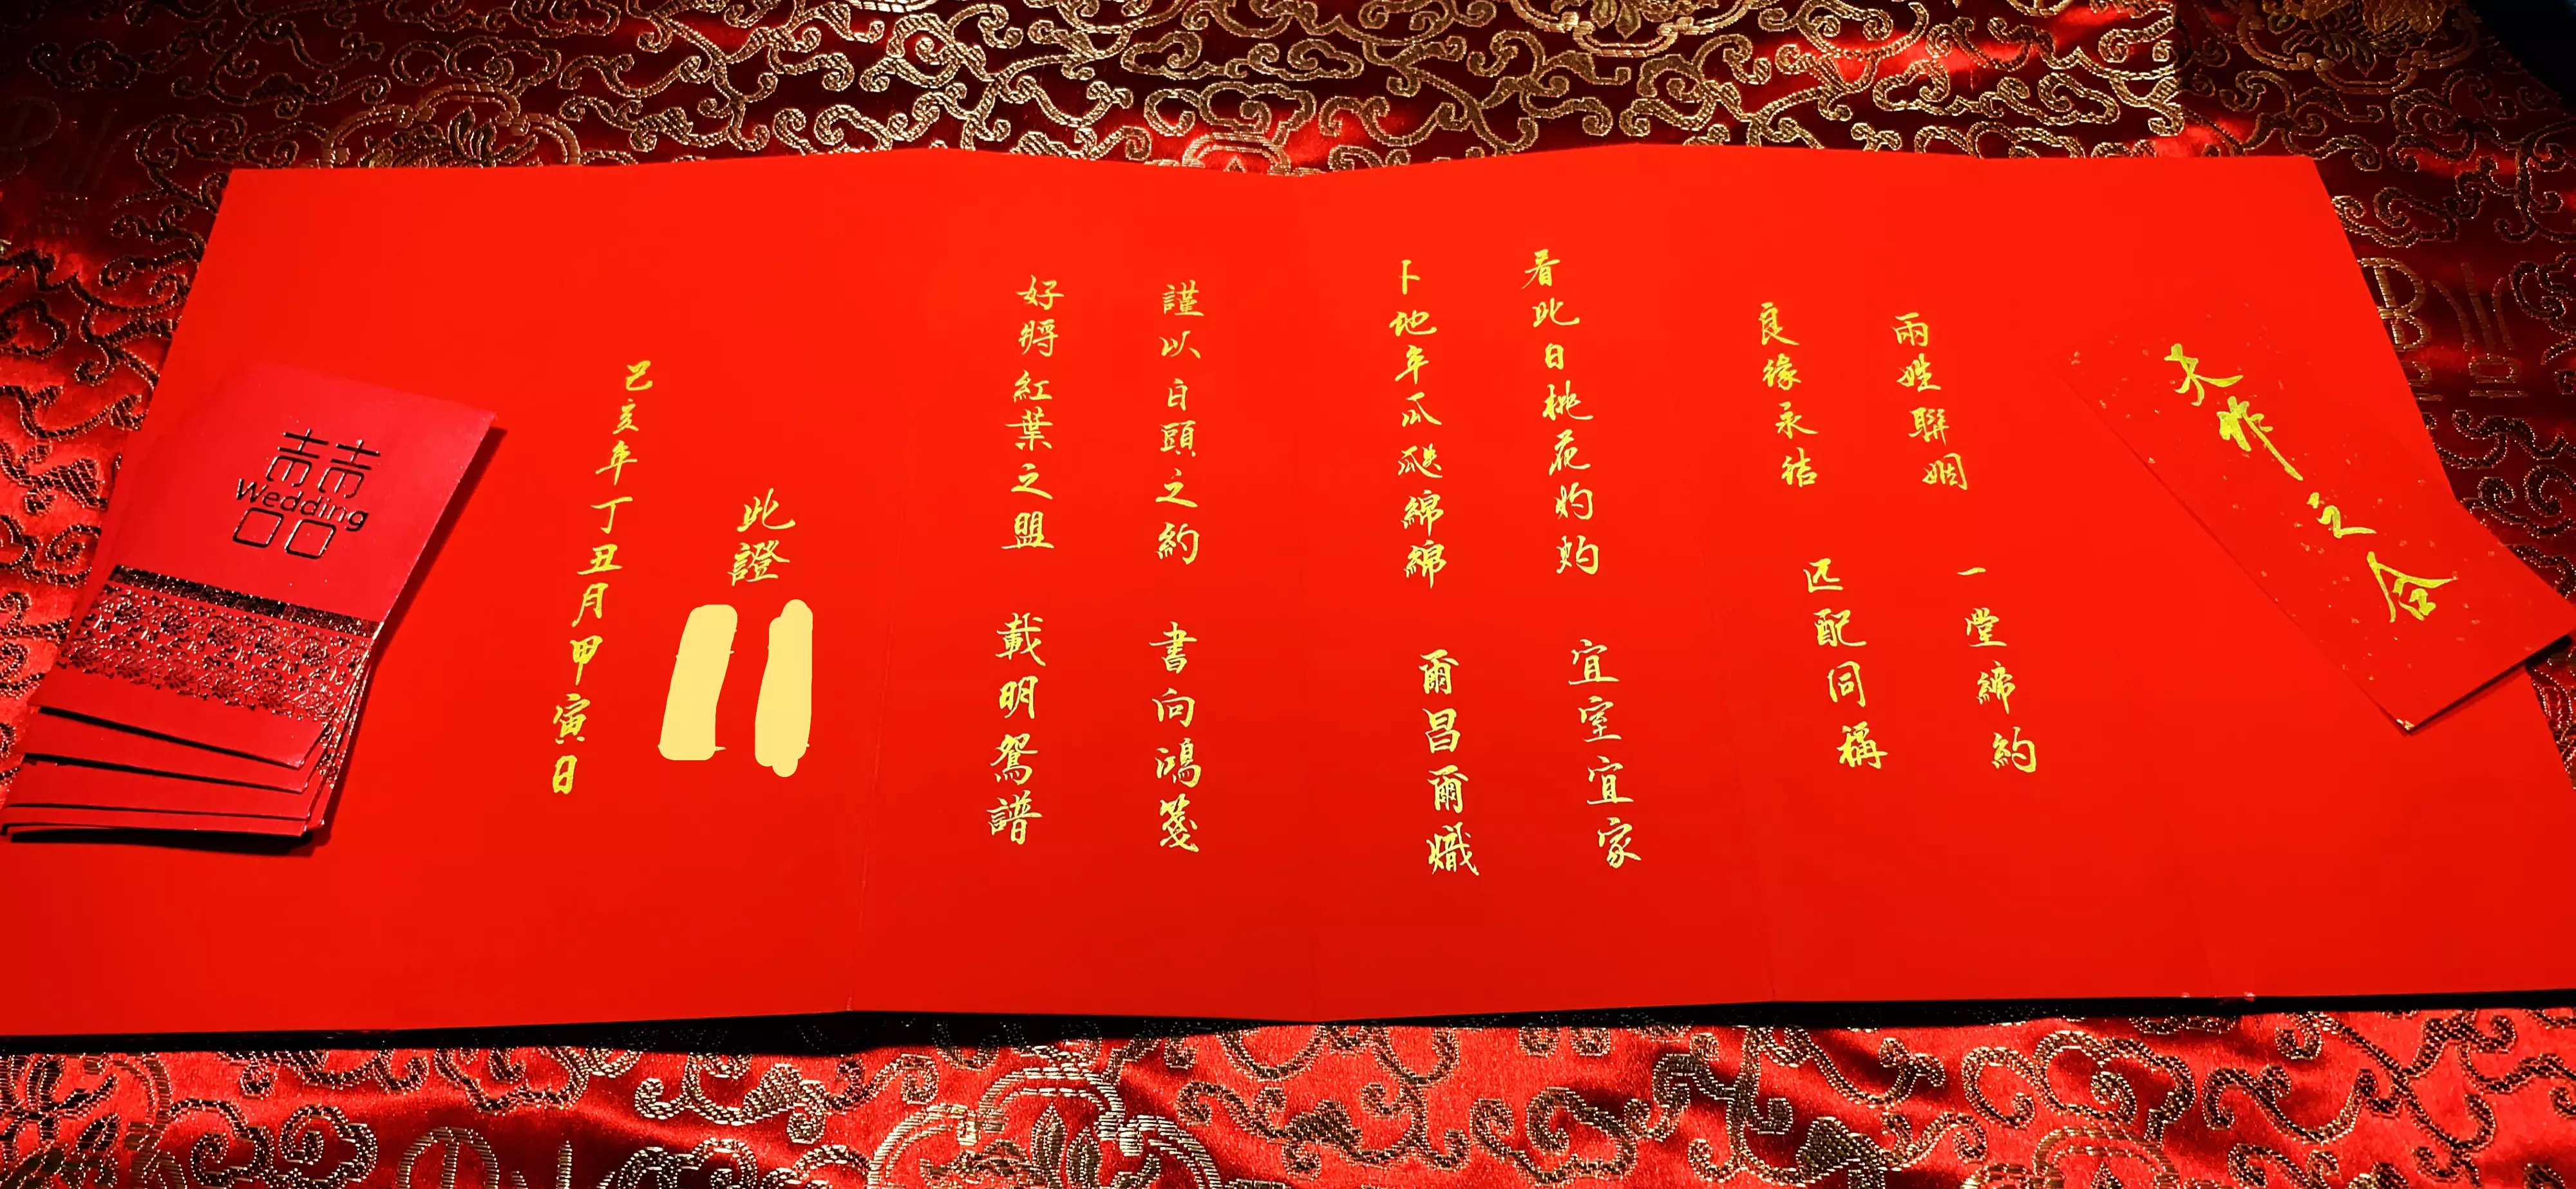 天作之合
兩姓聯姻 一堂締約
良緣永結 匹配同稱
看此日桃花灼灼 宜室宜家
卜他年瓜瓞綿綿 爾昌爾熾
謹以白頭之約 書向鴻箋
好將紅葉之盟 載明鴛譜
此證
己亥年丁丑月甲寅日
囍
Wedding